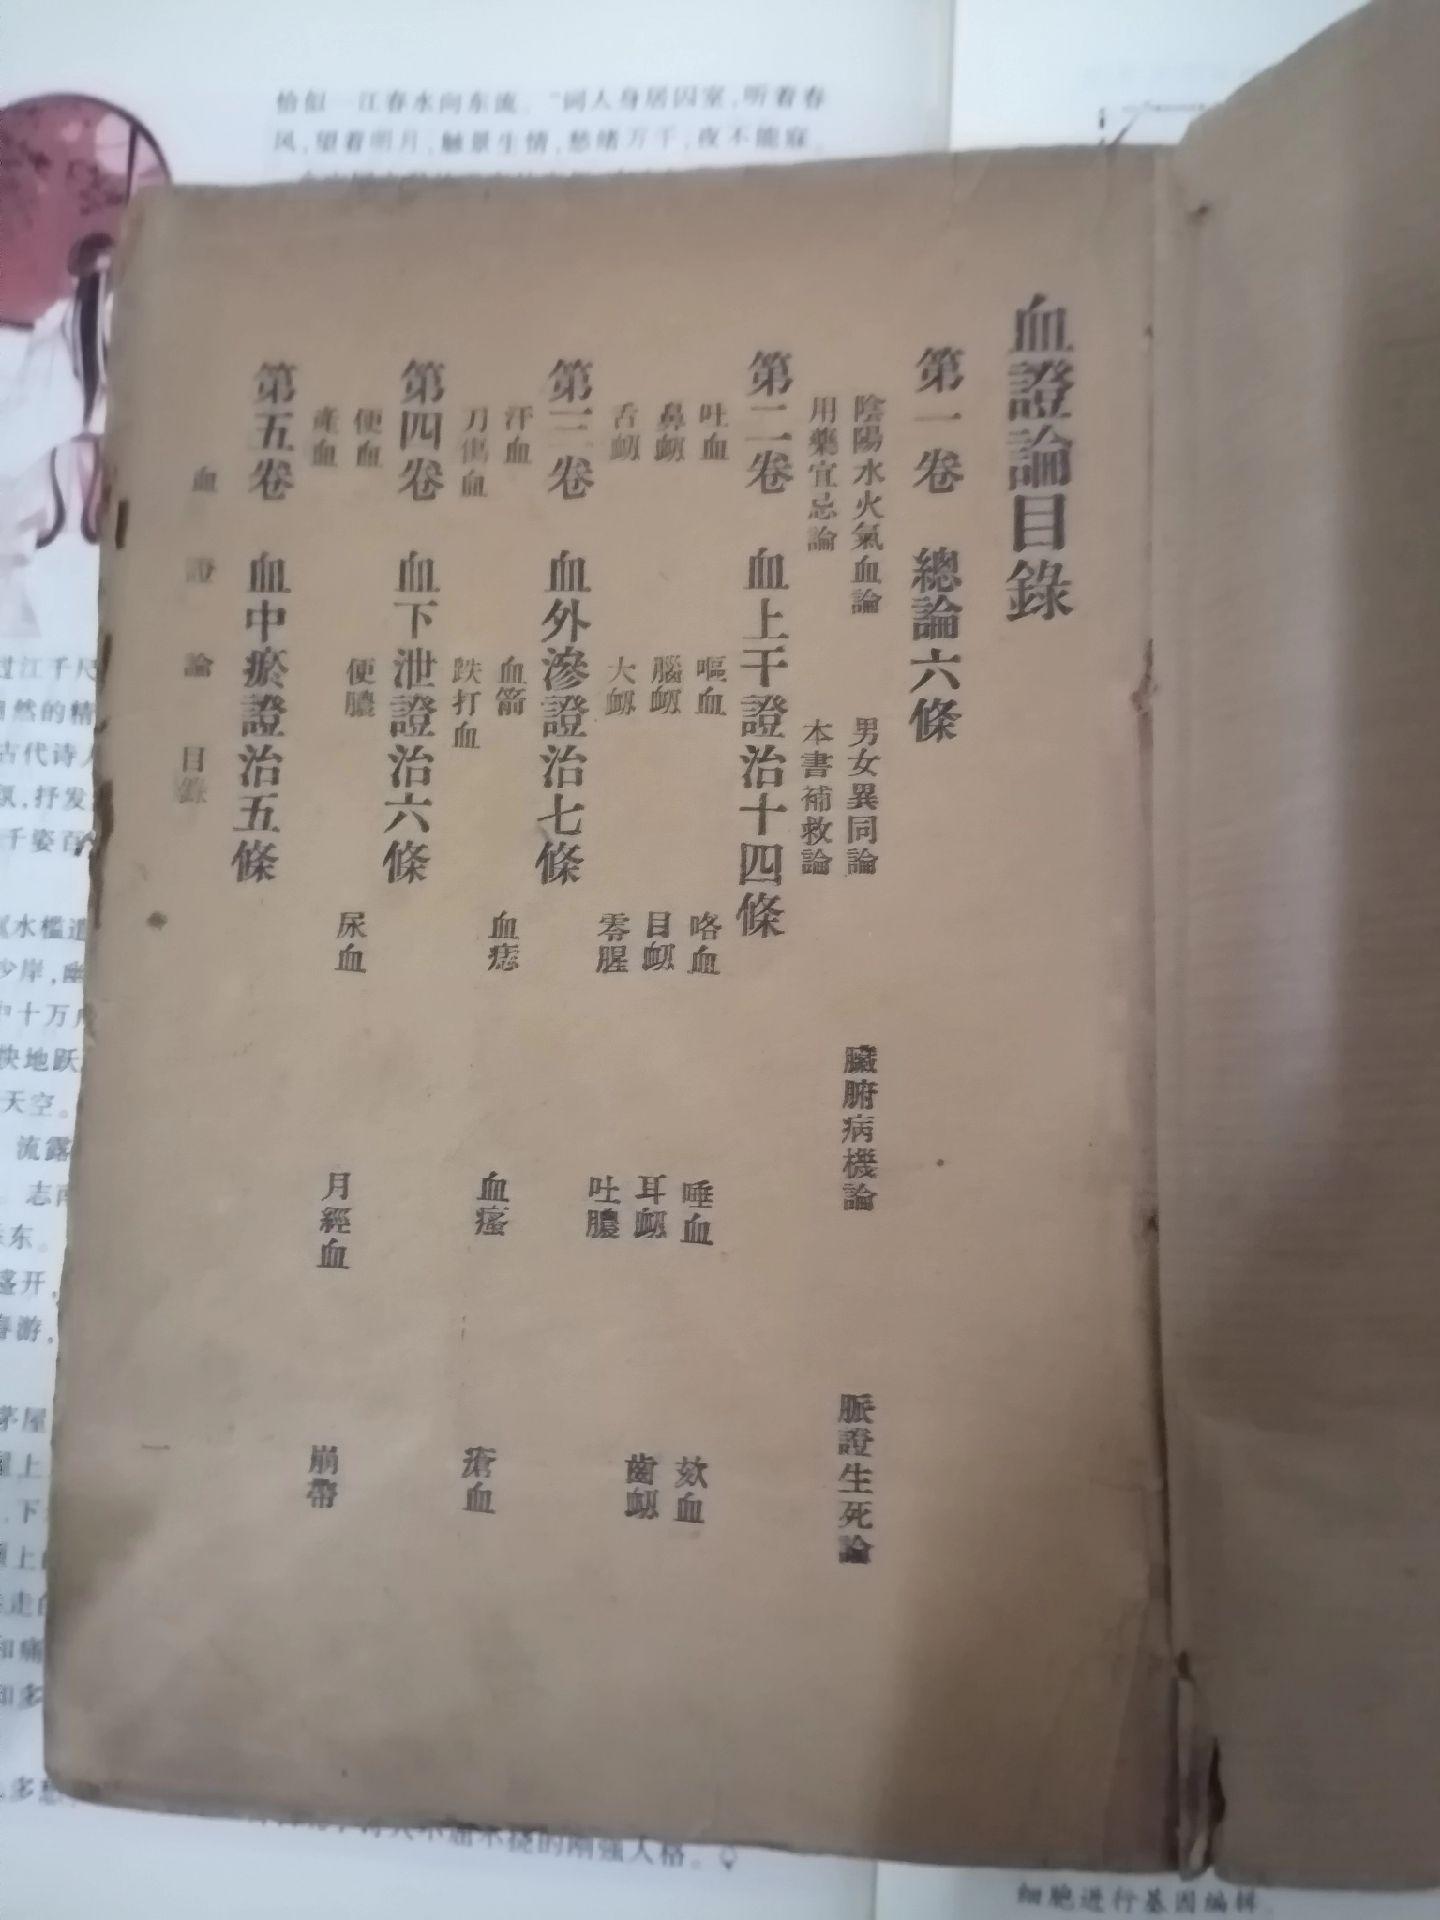 血證論目錄
第一卷　總論六條
陰陽水火氣血論　男女異同論　臟腑病機論　脈證生死論
用藥宜忌論　本書補救論
第二卷　血上干證治十四條
吐血　嘔血　咯血　唾血　欬血
鼻衂　腦衂　目衂　耳衂　齒衂
舌衂　大衂　零腥　吐膿
第三卷　血外滲證治七條
汗血　血箭　血痣　血瘙　瘡血
刀傷血　跌打血
第四卷　血下泄證治六條
便血　便膿　尿血　月經血　崩帶
產血
第五卷　血中瘀證治五條
血證論　目錄
一
恰似一江春水向东流。"词人身居囚室,听着春
风,望着明月,触景生情,愁绪万千,夜不能寐。
过江千尺
自然的精
古代诗人
氛,抒发
千姿百
《水槛遣
少岸,幽
中十万户
快地跃
天空。
流露
志南
东。
盛开,
春游,
茅屋
上
,下
上
走
和痛
和多
多愁
不屈不挠的刚强人格。
细胞进行基因编辑